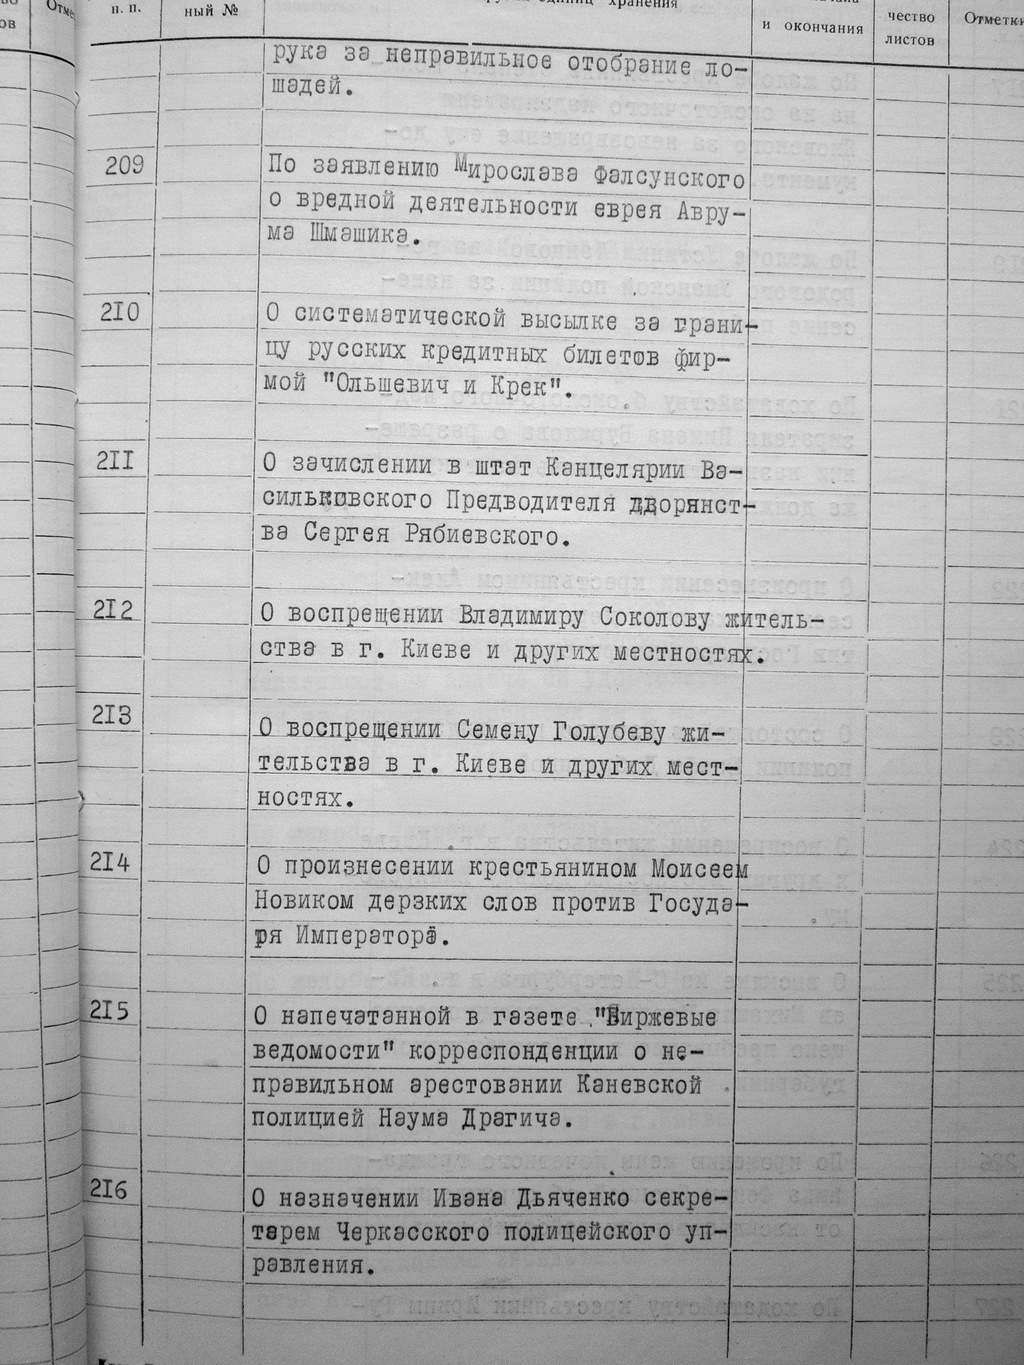 п. п.
ный №
единиц хранения
и окончания
чество
листов
Отметки
рука за неправильное отобрание ло-
шадей.
209
По заявлению Мирослава Фалсунского
о вредной деятельности еврея Авру-
ма Шмашика.
2I0
О систематической высылке за грани-
цу русских кредитных билетов фир-
мой "Ольшевич и Крек".
2II
О зачислении в штат Канцелярии Ва-
сильковского Предводителя дворянст-
ва Сергея Рябиевского.
2I2
О воспрещении Владимиру Соколову житель-
ства в г. Киеве и других местностях.
2I3
О воспрещении Семену Голубеву жи-
тельства в г. Киеве и других мест-
ностях.
2I4
О произнесении крестьянином Моисеем
Новиком дерзких слов против Госуда-
ря Императора.
2I5
О напечатанной в газете "Биржевые
ведомости" корреспонденции о не-
правильном арестовании Каневской
полицией Наума Драгича.
2I6
О назначении Ивана Дьяченко секре-
тарем Черкасского полицейского уп-
равления.